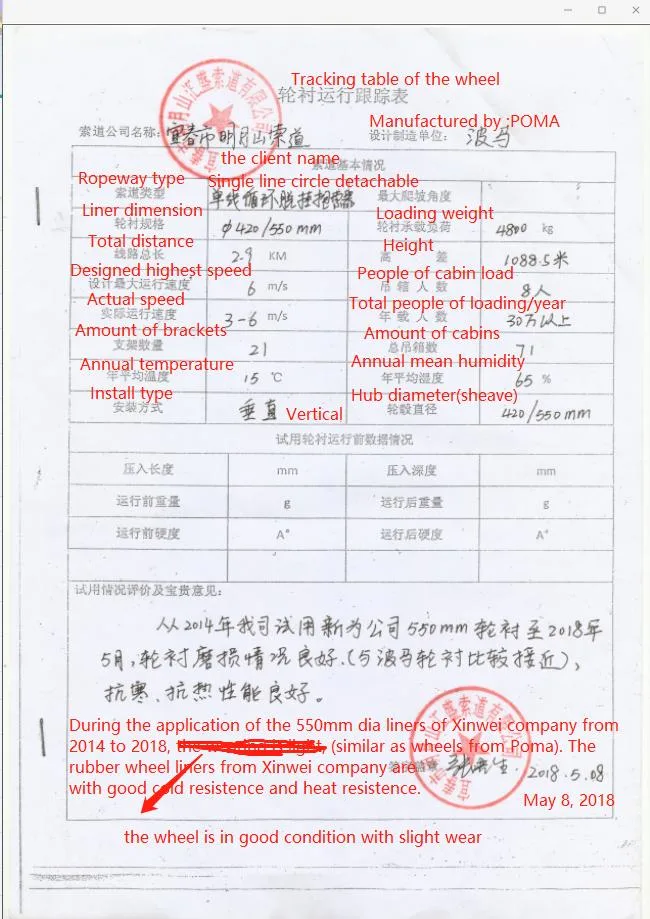 Tracking table of the wheel
轮衬运行跟踪表
Manufactured by ;POMA
索道公司名称: 宜春市明月山索道 设计制造单位: 波马
the client name
索道基本情况
Ropeway type Single line circle detachable
索道类型 单线循环脱挂抱索器 最大爬坡角度
Liner dimension Loading weight
轮衬规格 φ420/550mm 轮衬承载负荷 4800 kg
Total distance Height
线路总长 2.9 KM 高 差 1088.5米
Designed highest speed People of cabin load
设计最大运行速度 6 m/s 吊箱人数 8人
Actual speed Total people of loading/year
实际运行速度 3-6 m/s 年载人数 30万以上
Amount of brackets Amount of cabins
支架数量 21 总吊箱数 71
Annual temperature Annual mean humidity
年平均温度 15 ℃ 年平均湿度 65 %
Install type Hub diameter(sheave)
安装方式 垂直 Vertical 轮毂直径 420/550mm
试用轮衬运行前数据情况
压入长度 mm 压入深度 mm
运行前重量 g 运行后重量 g
运行前硬度 A° 运行后硬度 A°
试用情况评价及宝贵意见:
从2014年我司试用新为公司550mm轮衬至2018年
5月,轮衬磨损情况良好.(与波马轮衬比较接近),
抗寒、抗热性能良好。
During the application of the 550mm dia liners of Xinwei company from
2014 to 2018, (similar as wheels from Poma). The
rubber wheel liners from Xinwei company are
with good cold resistence and heat resistence.
2018.5.08
May 8, 2018
the wheel is in good condition with slight wear